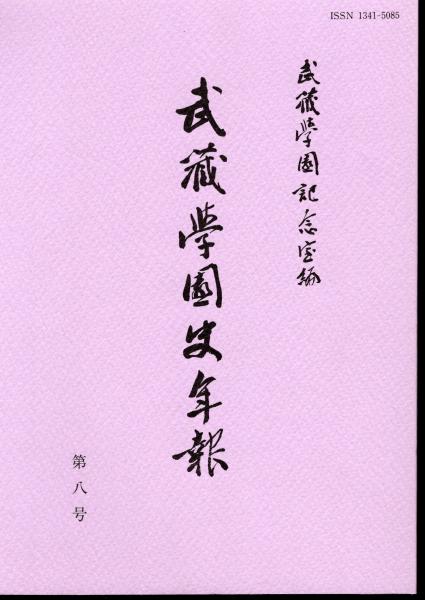 ISSN 1341-5085
武蔵學園記念室編
武蔵學園史年報
第八号